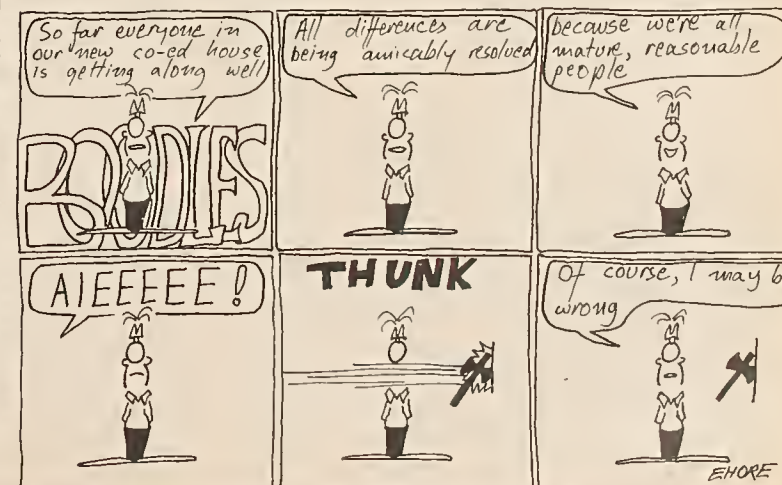 So far everyone in
our new co-ed house
is getting along well
BOODLES
All differences are
being amicably resolved
because we're all
mature, reasonable
people
AIEEEEE!
THUNK
Of course, I may b
wrong
EHORE